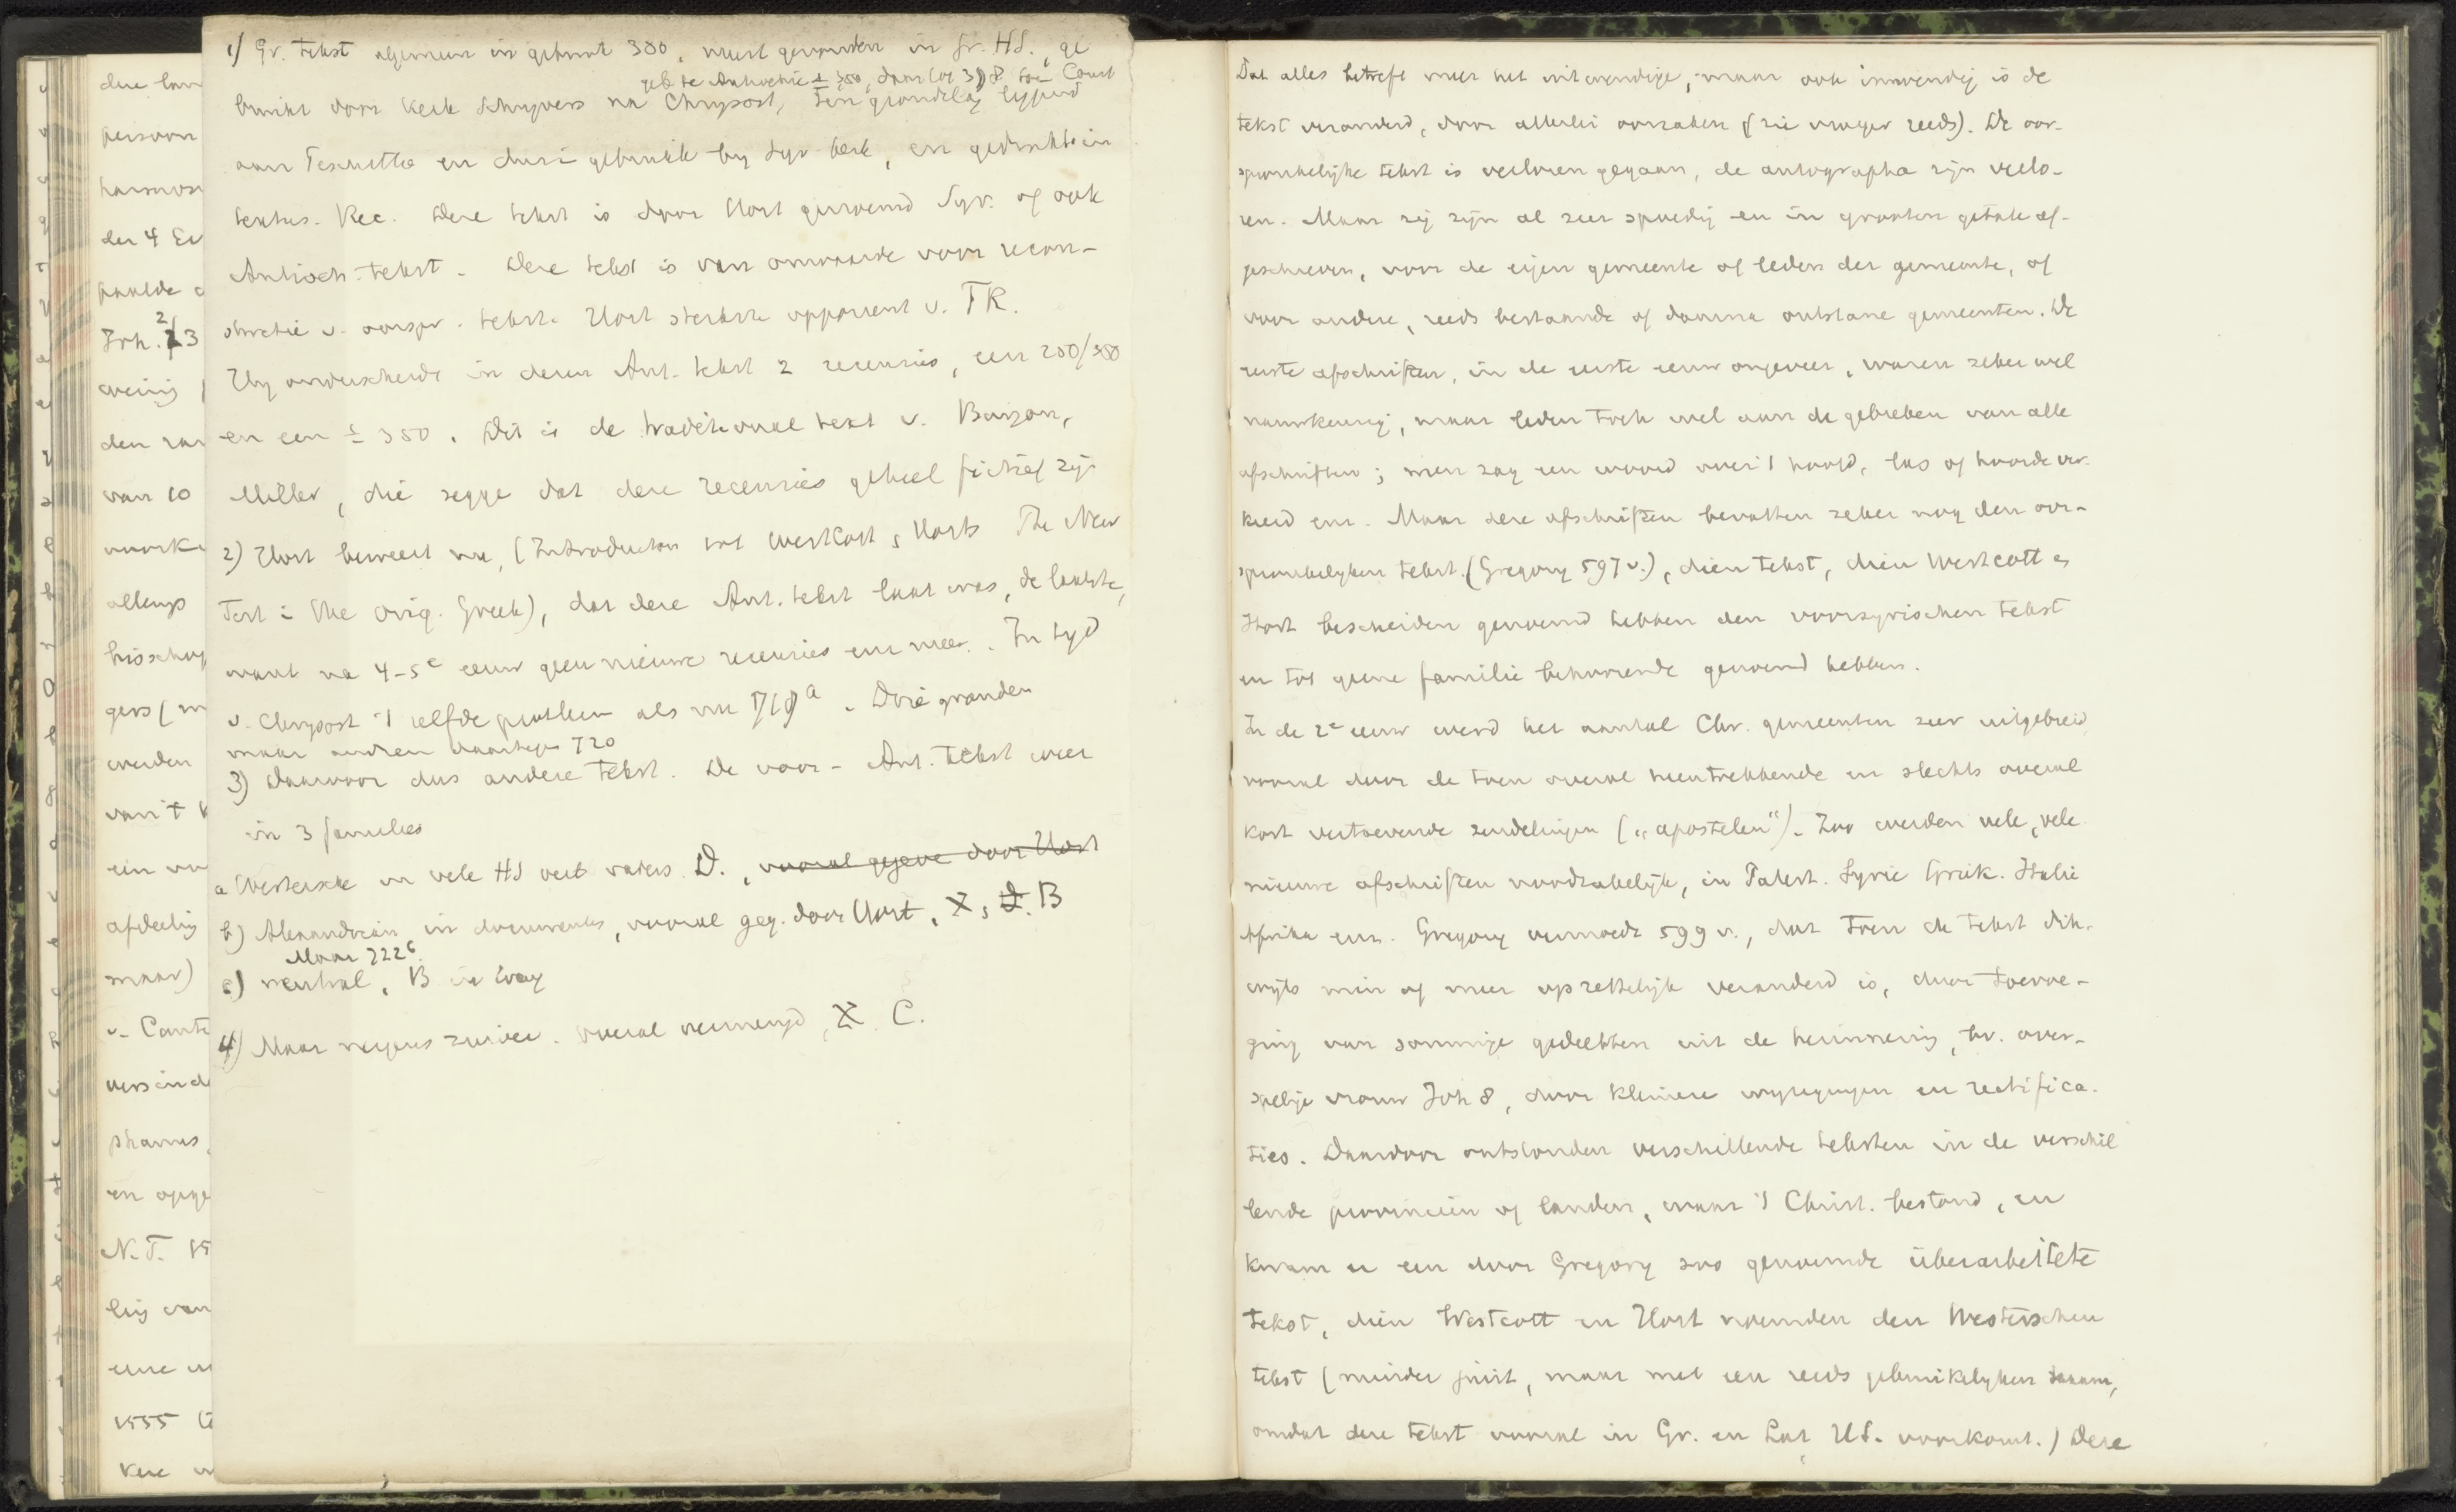 1) Gr. tekst algemeen in gebruik 380, meest gevonden in Gr. HS., ge
geb te Antiochie ± 350, daar tot 398 toen Const
bruikt door kerk schryvers na Chrysost, Ten grondslag liggend
aan Peschitto en dus gebruikt by Syr kerk, en gedrukt in
textus. Rec. Deze tekst is door Hort genoemd Syr. of ook
Antioch. tekst. Deze tekst is van onwaarde voor recon-
structie v. oorspr. tekst. Hort sterkste opponent v. TR.
Hy onderscheidt in dezen Ant. tekst 2 recensies, een 250/350
en een ± 350. Dit is de traditional text v. Burgon,
Miller, die zegge dat deze recensies geheel fictief zijn
2) Hort beweert nu, (Introduction tot Westcott & Horts The New
Test in the orig. Greek), dat deze Ant. tekst laat was, de laatste,
want na 4-5e eeuw geen nieuwe recensies enz meer. In tyd
v. Chrysost 't zelfde probleem als nu 718a. Drie gronden
maar andren daartegen 720
3) Daarvoor dus andere tekst. De voor-Ant. tekst weer
in 3 families
a Westersche in vele HS vert vaders. D., vooral gegeve door Hort
b) Alexandrian, in documents, vooral geg. door Hort, א, B
Maar 722b
c) neutral, B in weg
4) Maar nergens zuiver. overal vermengd, א C.
dere
persoon
der 4 Ev
Joh. 2/3
weinig
van 10
bisschop
gers (
werden
van 't
een
afdeeling
maar)
v. Cant
phanus
en
N.T.
ling van
eene
1555
Dat alles betreft meer het uitwendige, maar ook inwendig is de
tekst veranderd, door allerlei oorzaken (zie vroeger reeds). De oor-
spronkelijke tekst is verloren gegaan, de autographa zijn verlo-
ren. Maar zij zijn al zeer spoedig en in grooten getale af-
geschreven, voor de eigen gemeente of leden der gemeente, of
voor andere, reeds bestaande of daarna ontstane gemeenten. De
eerste afschriften, in de eerste eeuw ongeveer, waren zeker wel
nauwkeurig, maar leden toch wel aan de gebreken van alle
afschriften; men zag een woord over 't hoofd, las of hoorde ver-
keerd enz. Maar deze afschriften bevatten zeker nog den oor-
spronkelyken tekst. (Gregory 597 v.), dien tekst, dien Westcott en
Hort bescheiden genoemd hebben den voorsyrischen tekst
en tot geene familie behoorende genoemd hebben.
In de 2e eeuw werd het aantal Chr. gemeenten zeer uitgebreid
vooral door de toen overal heentrekkende en slechts overal
kort vertoevende zendelingen („apostelen“). Zoo werden vele, vele
nieuwe afschriften noodzakelijk, in Palest. Syrie Griek. Italie
Afrika enz. Gregory vermoedt 599 v., dat toen de tekst dik-
wijls min of meer opzettelijk veranderd is, door toevoe-
ging van sommige gedeelten uit de herinnering, bv. over-
spelige vrouw Joh 8, door kleinere wyzigingen en rectifica-
ties. Daardoor ontstonden verschillende teksten in de verschil
lende provincien of landen, waar 't Christ. bestond, en
kwam er een door Gregory zoo genoemde überarbeitete
tekst, dien Westcott en Hort noemden den Westerschen
tekst (minder juist, maar met een reeds gebruikelyken naam,
omdat deze tekst vooral in Gr. en Lat HS. voorkomt.) Deze